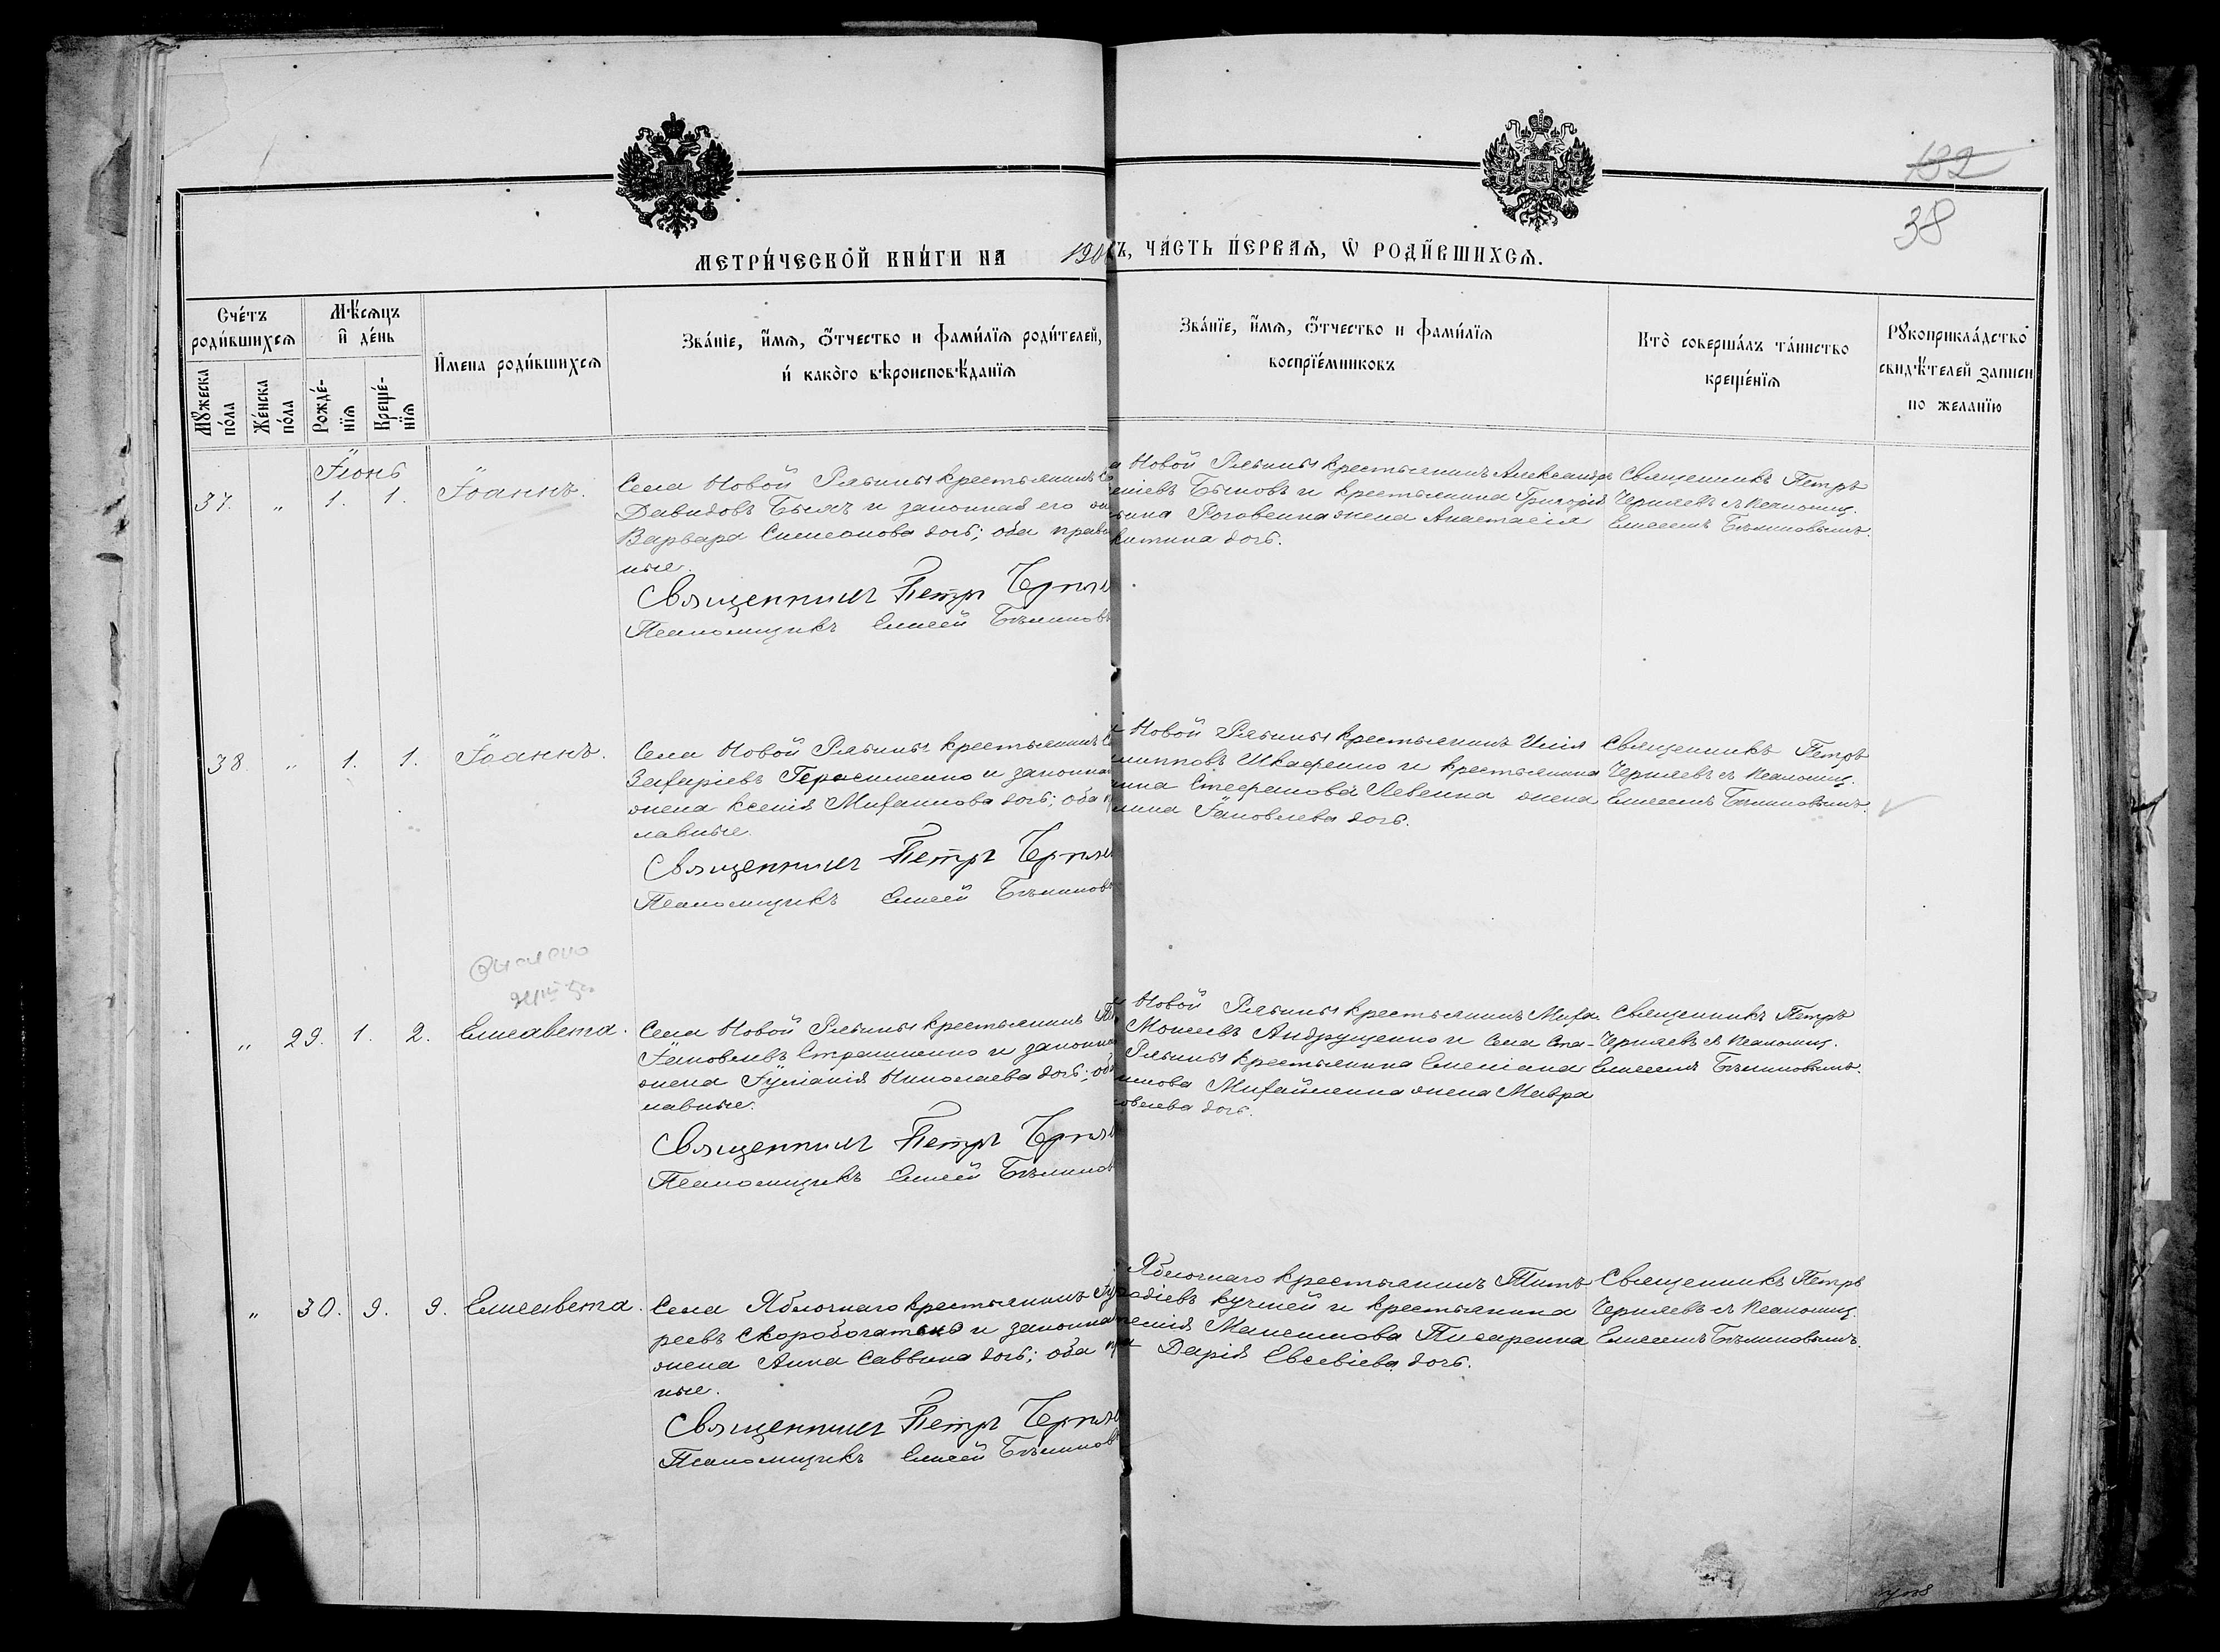 132
38
МЕТРИ́ЧЕСКОЙ КНИ́ГИ НА 190
Ъ, ЧА́СТЬ ПЕ́РВАѦ, Ѡ҆ РОДИ́ВШИХСѦ.
Сче́тъ роди́вшихсѧ
Мꙋ́жеска по́ла
Же́нска по́ла
Мѣ́сѧцъ и҆ де́нь
Рожде́-нїѧ
Креще́-нїѧ
И҆мена роди́вшихсѧ
Зва́нїе, и҆́мѧ, ѻ҆́тчество и фами́лїѧ роди́телей,
и҆ како́го вѣроисповѣ́данїѧ
Зва́нїе, и҆́мѧ, ѻ҆́тчество и фами́лїѧ
воспрїе́мниковъ
Кто̀ соверша́лъ та́инство
креще́нїѧ
Рꙋкоприкла́дство
свидѣ́телей записи
по жела́нїю
Іюнь
37. „ 1. 1. Іоаннъ.
Села Новой Рябины крестьянинъ
Давидовъ Быкъ и законная его
Варвара Симеонова дочь; оба право
ные.
Священникъ Петръ Черня
Псаломщикъ Елисей Бѣликовъ
Новой Рябины крестьянинъ Александръ
Быковъ и крестьянина Григорія
Роговенка жена Анастасія
китина дочь.
Священникъ Петръ
Черняевъ съ псаломщ.
Елисеемъ Бѣликовымъ.
38. „ 1. 1. Іоаннъ.
Села Новой Рябины крестьянинъ
Захаріевъ Герасименко и законная
жена Ксенія Михаилова дочь; оба
лавные.
Священникъ Петръ Черня
Псаломщикъ Елисей Бѣликовъ
Новой Рябины крестьянинъ Илія
Шкаренко и крестьянина
Стефанова Левенка жена
Іаковлева дочь.
Священникъ Петръ
Черняевъ съ псаломщ.
Елисеемъ Бѣликовымъ.
„ 29. 1. 2. Елисавета.
Села Новой Рябины крестьянинъ
Іаковлевъ Страшненко и законная
жена Іуліанія Николаева дочь;
лавные.
Священникъ Петръ Черня
Псаломщикъ Елисей Бѣликов
Новой Рябины крестьянинъ Миха
Моисеевъ Андрущенко и села Ста-
Рябины крестьянина Емеліана
Михайленка жена Мавра
дочь.
Священникъ Петръ
Черняевъ съ псаломщ.
Елисеемъ Бѣликовымъ.
„ 30. 9. 9. Елисавета.
Села Яблочнаго крестьянинъ
реевъ Скоробогатько и законная
жена Анна Саввина дочь; оба
ные.
Священникъ Петръ Черня
Псаломщикъ Елисей Бѣликов
Яблочнаго крестьянинъ Титъ
Кучмей и крестьянина
Писаренка
Дарія Евсевіева дочь.
Священникъ Петръ
Черняевъ съ псаломщ.
Елисеемъ Бѣликовымъ.